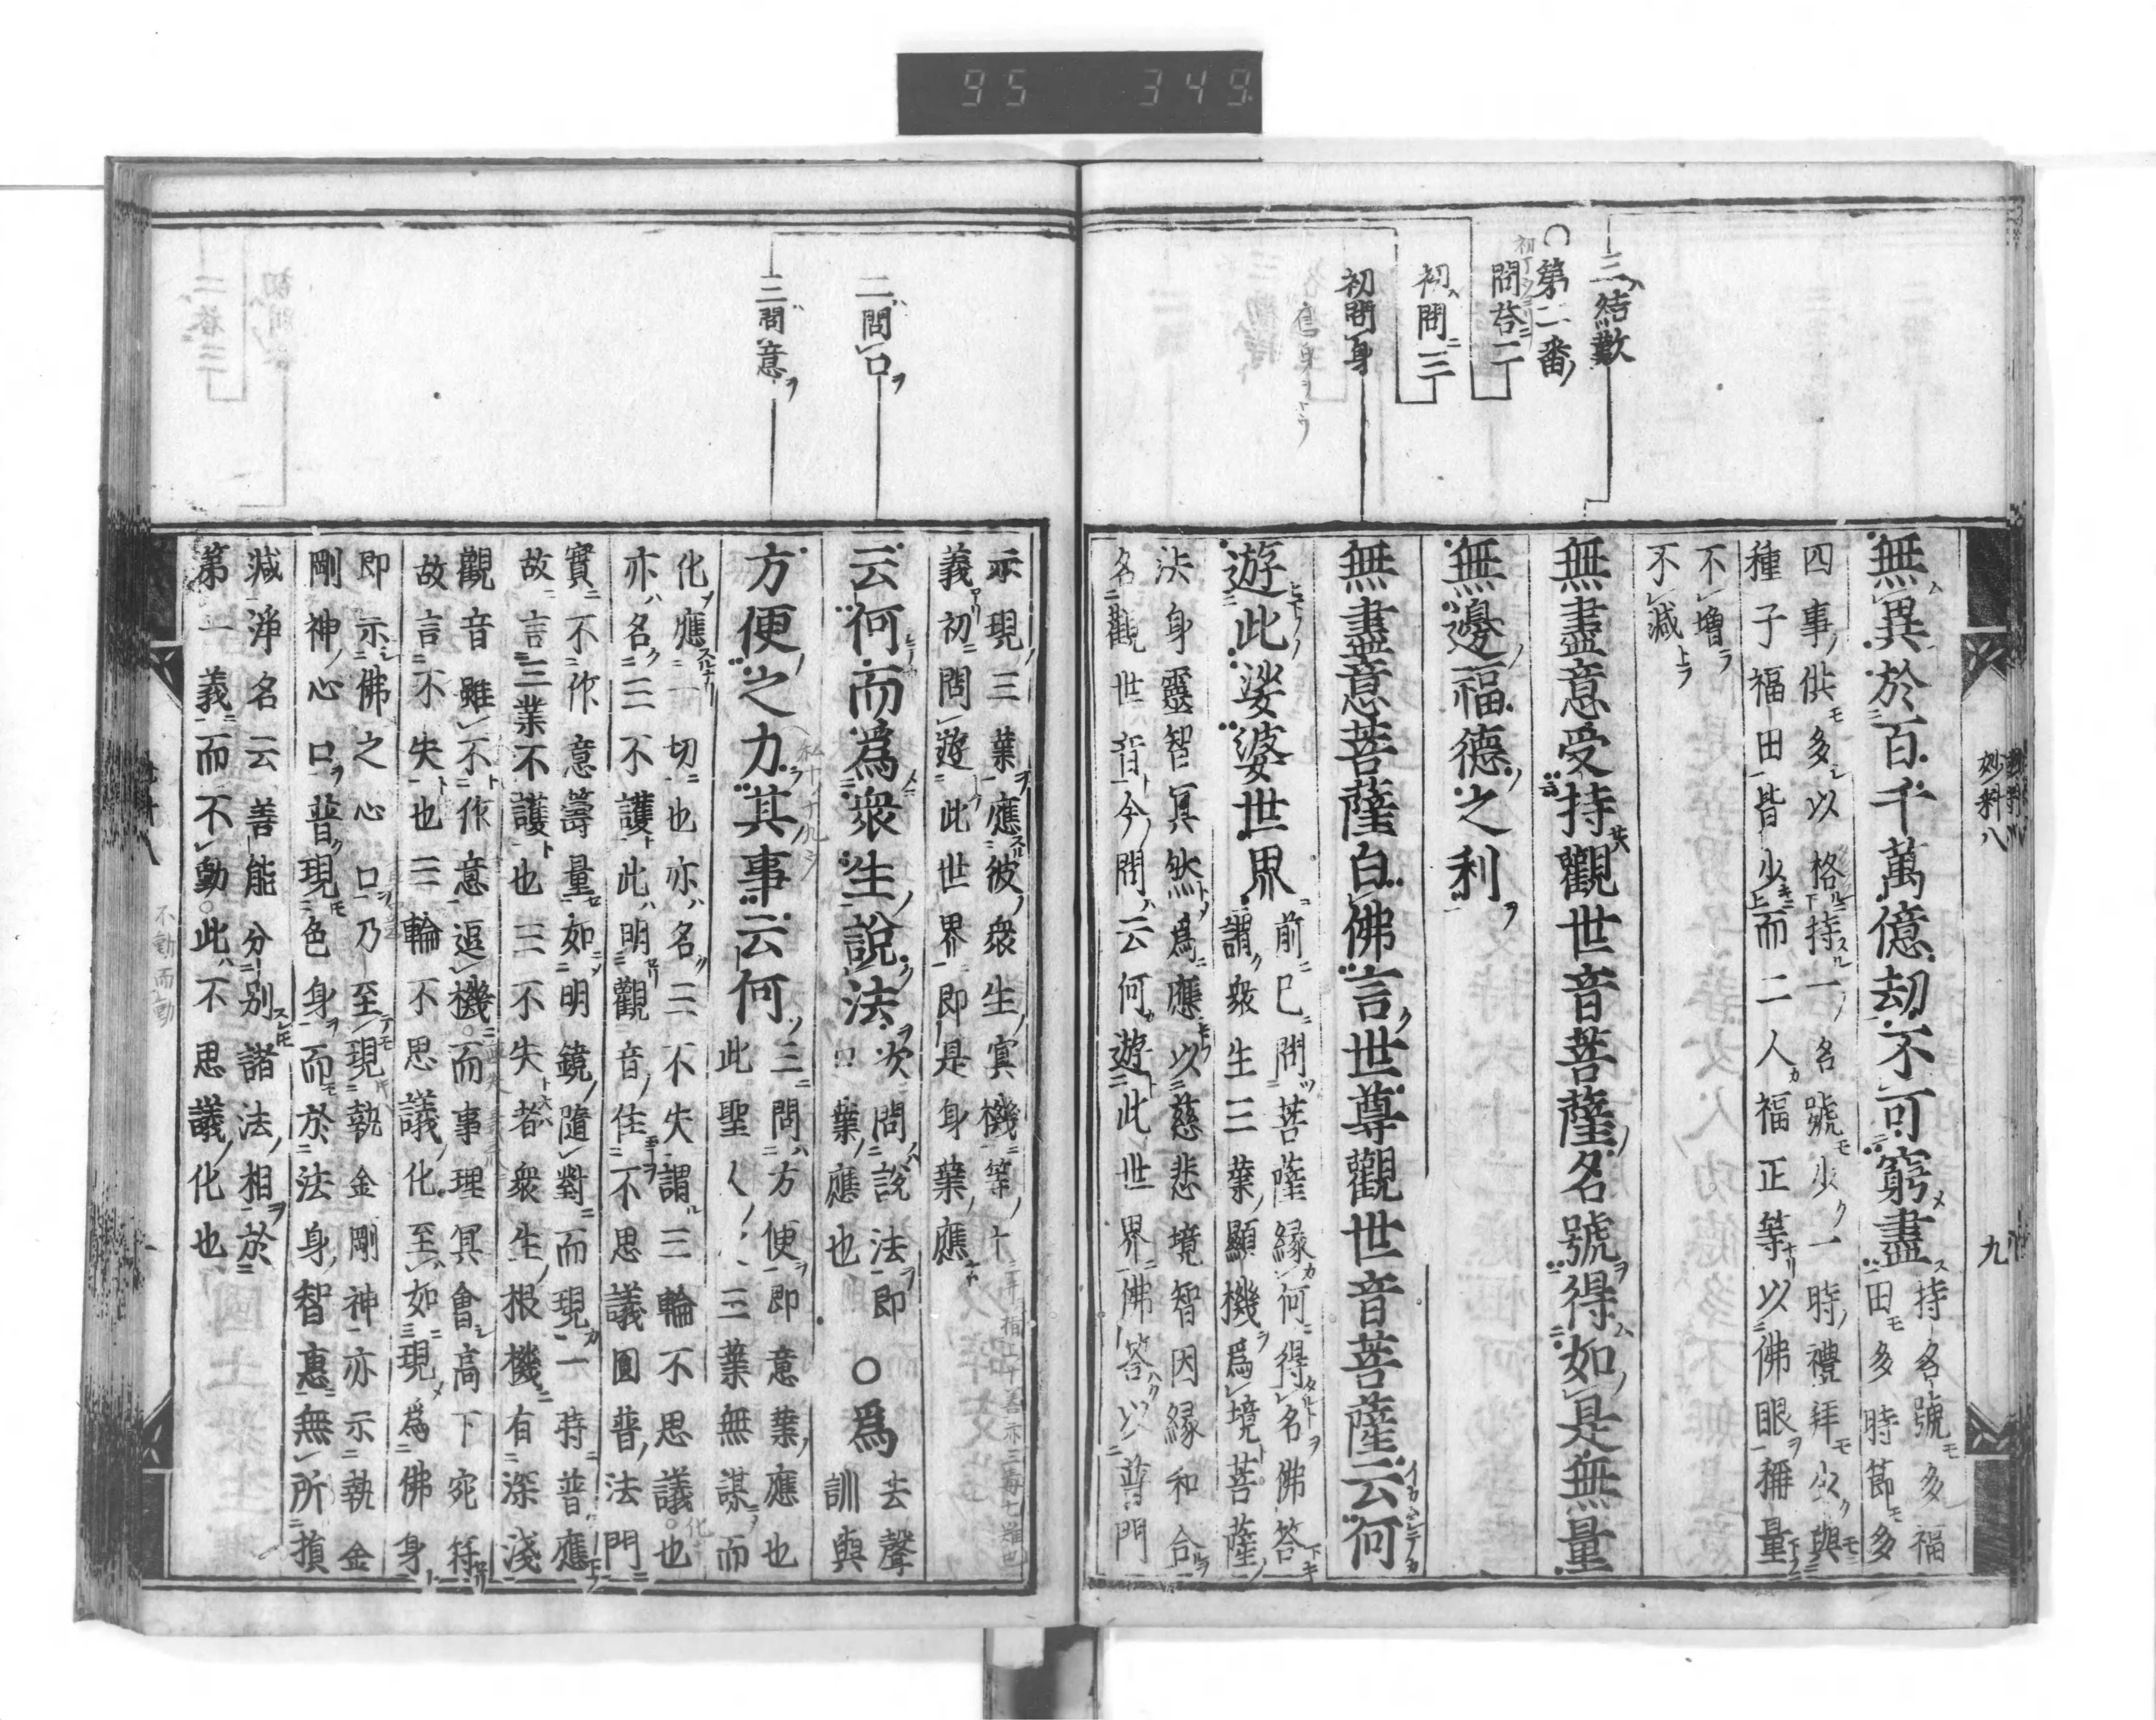 95 349
三結歎
〇第二番
問荅二
初問三
初問身
無異於百千萬億劫不可窮盡
持名號多福
田多時節多
四事供多以格持一名號少一時禮拜少與
種子福田皆少而二人福正等以佛眼稱量
不增
不減
無盡意受持觀世音菩薩名號得如是無量
無邊福德之利
無盡意菩薩白佛言世尊觀世音菩薩云何
遊此娑婆世界
前已問菩薩緣何得名佛答
謂衆生三業顯機爲境菩薩
法身靈智冥然爲應以慈悲境智因緣和合
名觀世音今問云何遊此世界佛答以普門
妙科八
九
二問口
三問意
示現三業應彼衆生冥機等
義初問遊此世界即是身業應
云何而爲衆生說法
次問說法即
口業應也
〇爲
去聲
訓與
方便之力其事云何
三問方便即意業應也
此聖人三業無謀而
化應一切也亦名三不失謂三輪不思議也
亦名三不護此明觀音住不思議圓普法門
實不作意籌量如明鏡隨對而現一時普應
故言三業不護也三不失者衆生根機有深淺
觀音雖不作意逗機而事理冥會高下宛符
故言不失也三輪不思議化至如現爲佛身
即示佛之心口乃至現執金剛神亦示執金
剛神心口普現色身而於法身智惠無所損
減淨名云善能分別諸法相於
第一義而不動此不思議化也
不動而動